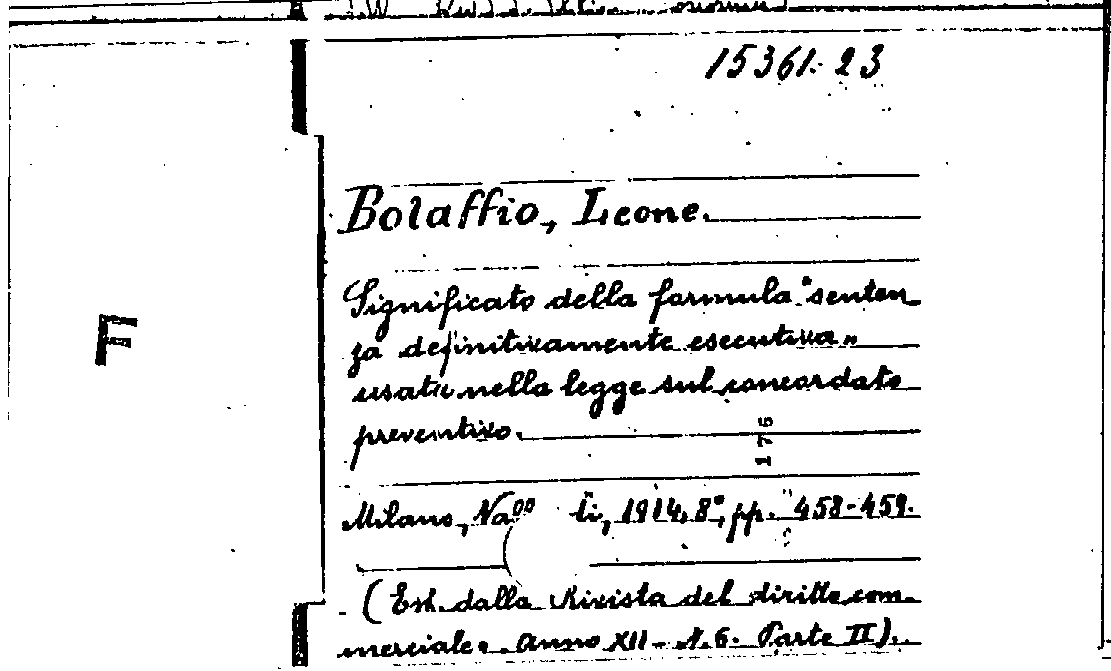 15361.23
Bolaffio, Leone.
Significato della formula "senten
za definitivamente esecutiva"
usata nella legge sul concordato
preventivo.
F
175
Milano, 1914, 8°, pp. 458-459.
(Est. dalla Rivista del diritto com-
merciale. Anno XII - N. 6. Parte II).